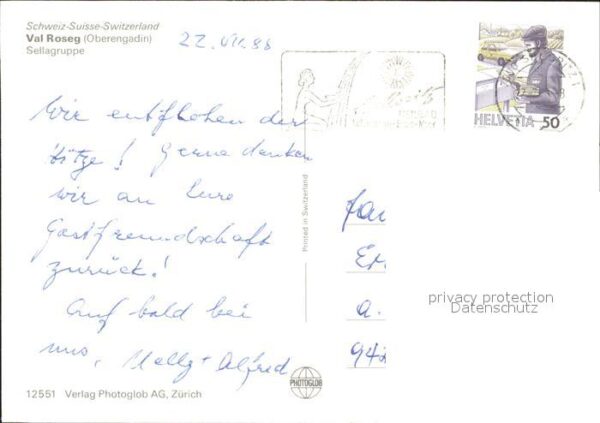 Schweiz-Suisse-Switzerland
Val Roseg (Oberengadin)
Sellagruppe
22. VII. 88
HELVETIA 50
Wir entflohen der
Hitze! Gerne denken
wir an Eure
Gastfreundschaft
zurück!
Auf bald bei
uns, Nelly + Alfred
Printed in Switzerland
privacy protection
Datenschutz
a.
PHOTOGLOB
12551 Verlag Photoglob AG, Zürich